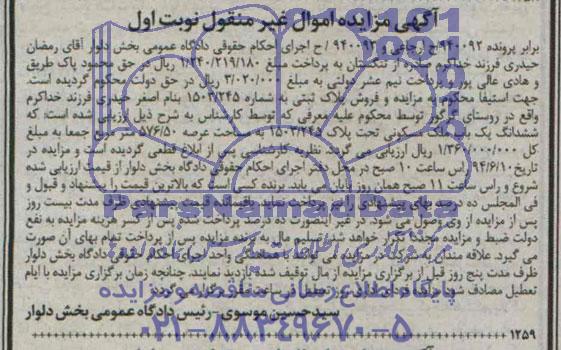 آگهی مزایده اموال غیر منقول نوبت اول
برابر پرونده ۹۴۰۰۹۲/ح ارجاعی و ۹۴۰۰۹۲ / ح اجرای احکام حقوقی دادگاه عمومی بخش دلوار آقای رمضان
حیدری فرزند خداکرم صادره از تنگستان به پرداخت مبلغ ۱/۲۴۰/۲۱۹/۱۸۰ ریال در حق محمود پاک طریق
و هادی عالی پور و پرداخت نیم عشر دولتی به مبلغ ۳/۰۲۰/۰۰۰ ریال در حق دولت محکوم گردیده است.
جهت استیفا محکوم به مزایده و فروش پلاک ثبتی به شماره ۱۵۰۳/۲۴۵ بنام اصغر حیدری فرزند خداکرم
واقع در روستای توسط محکوم علیه معرفی که توسط کارشناس به شرح ذیل ارزیابی شده است: که
ششدانگ یک مسکونی تحت پلاک ۱۵۰۳/۲۴۵ مساحت عرصه متر مربع جمعا به مبلغ
کل ۱/۳۶۰/۰۰۰/۰۰۰ ریال ارزیابی می گردد. نظریه کارشناسی پس از ابلاغ قطعی گردیده است و مزایده در
تاریخ ۹۴/۶/۱۰ راس ساعت ۱۰ صبح در محل دفتر اجرای احکام حقوقی دادگاه بخش دلوار از قیمت ارزیابی شده
شروع و راس ساعت ۱۱ صبح همان روز پایان می یابد. برنده کسی است که بالاترین قیمت را پیشنهاد و قبول و
فی المجلس ده درصد بهای پیشنهادی را نیز پرداخت نماید. باقیمانده قیمت پیشنهادی ظرف مدت بیست روز
پس از مزایده از وی وصول می شود. در غیر اینصورت ده درصد پرداخت شده پس از کسر هزینه مزایده به نفع
دولت ضبط و مزایده مجددا تکرار خواهد شد. تسلیم مال به برنده مزایده پس از پرداخت تمام بهای آن صورت
می گیرد. علاقه مندان به شرکت در مزایده می توانند با هماهنگی واحد اجرای احکام حقوقی دادگاه بخش دلوار
ظرف مدت پنج روز قبل از برگزاری مزایده از مال توقیف شده بازدید نمایند. چنانچه زمان برگزاری مزایده با ایام
تعطیل مصادف شود مزایده فردای اداری روز تعطیل در ساعت مقرر برگزار می گردد.
سیدحسین موسوی - رئیس دادگاه عمومی بخش دلوار
۱۲۵۹
ParsNamadData
پایگاه اطلاع رسانی مناقصه و مزایده
۰۲۱-۸۸۳۴۹۶۷۰-۵